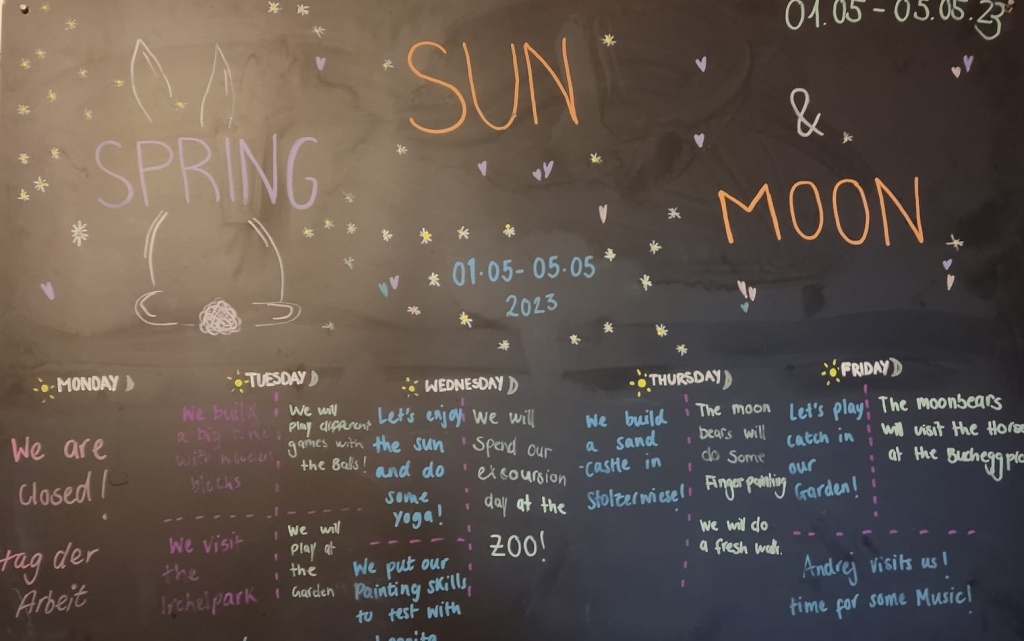 01.05 - 05.05.23
SUN
&
SPRING
MOON
01.05 - 05.05
2023
MONDAY
We are
closed!
tag der
Arbeit
TUESDAY
We build
a big
with wooden
blocks
We visit
the
Irchelpark
We will
play different
games with
the Balls!
We will
play at
the
Garden
WEDNESDAY
Let's enjoy
the sun
and do
some
yoga!
We put our
Painting skills
to test with
We will
Spend our
excursion
day at the
ZOO!
THURSDAY
We build
a sand
-castle in
Stolzerwiese!
The moon
bears will
do Some
Fingerpainting
We will do
a fresh walk.
FRIDAY
Let's play
catch in
our
Garden!
The moonbears
will visit the Horse
at the Bucheggpla
Andrej visits us!
time for some Music!